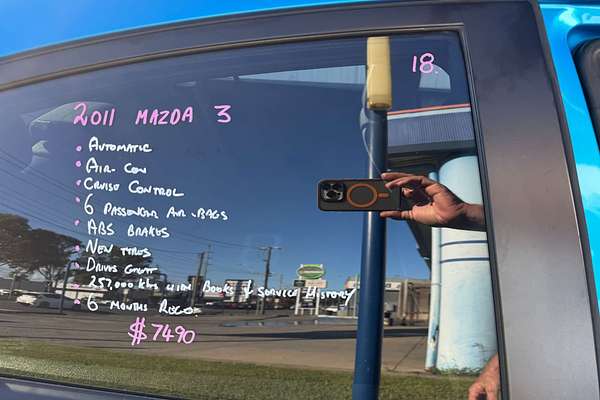 18.
2011 MAZDA 3
• AUTOMATIC
• AIR-CON
• CRUISE CONTROL
• 6 PASSENGER AIR-BAGS
• ABS BRAKES
• NEW TYRES
• DRIVES GREAT
• 257,000 kms WITH BOOKS & SERVICE HISTORY
• 6 MONTHS REGO
$7490